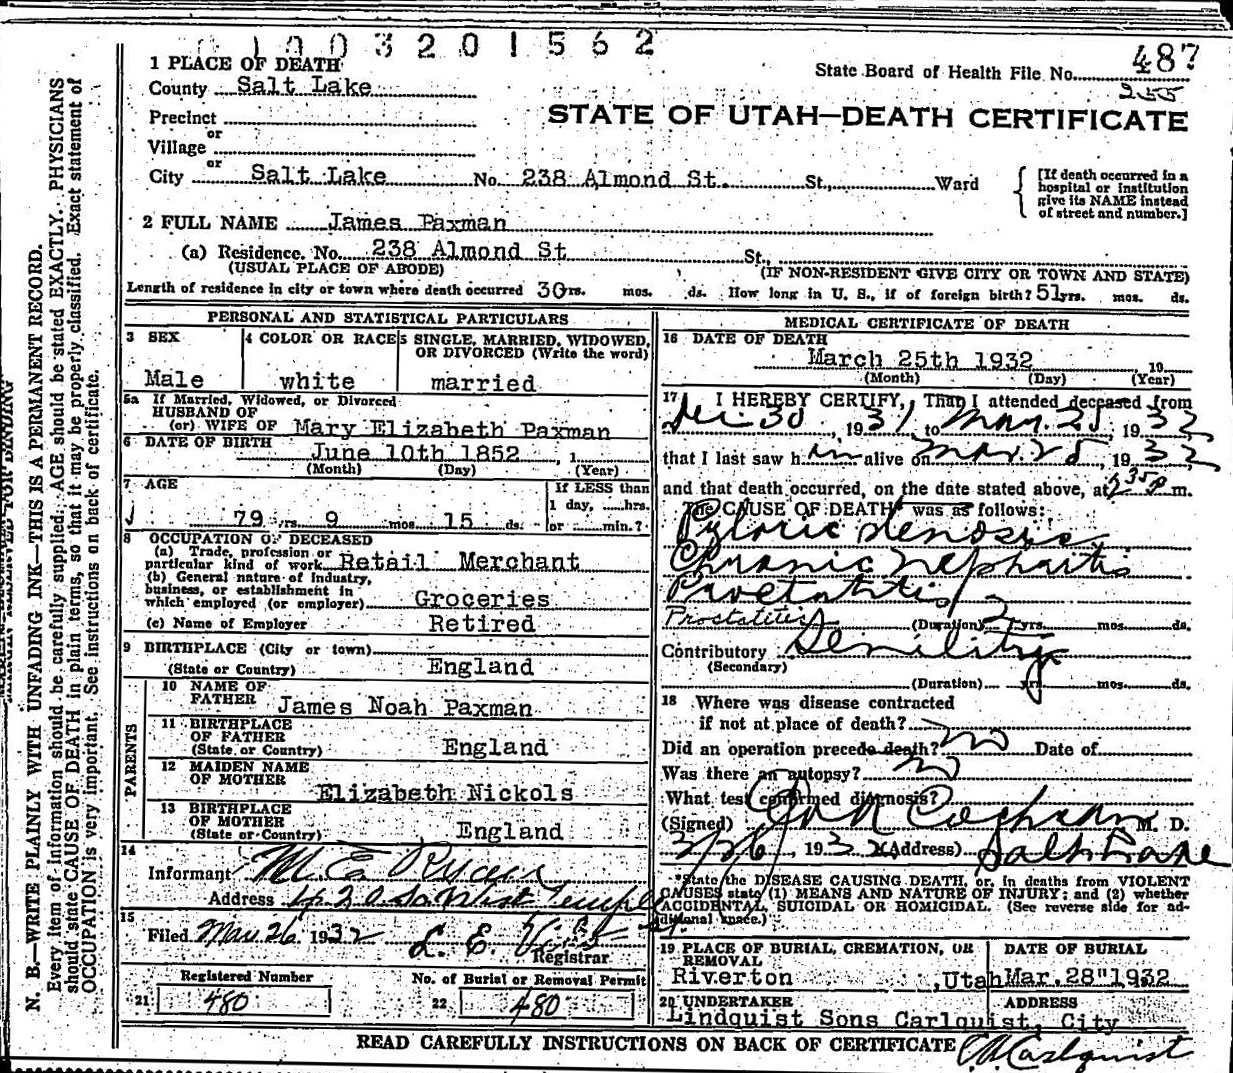 0 1 0 0 3 2 0 1 5 6 2
State Board of Health File No. 487
255
STATE OF UTAH—DEATH CERTIFICATE
1 PLACE OF DEATH
County Salt Lake
Precinct
or
Village
or
City Salt Lake No. 238 Almond St. St., Ward
[If death occurred in a
hospital or institution
give its NAME instead
of street and number.]
2 FULL NAME James Paxman
(a) Residence. No. 238 Almond St St.,
(USUAL PLACE OF ABODE) (IF NON-RESIDENT GIVE CITY OR TOWN AND STATE)
Length of residence in city or town where death occurred 30 yrs. mos. ds. How long in U. S., if of foreign birth? 51 yrs. mos. ds.
PERSONAL AND STATISTICAL PARTICULARS
3 SEX
Male
4 COLOR OR RACE
white
5 SINGLE, MARRIED, WIDOWED,
OR DIVORCED (Write the word)
married
5a If Married, Widowed, or Divorced
HUSBAND OF
(or) WIFE OF Mary Elizabeth Paxman
6 DATE OF BIRTH
June 10th 1852 , 1
(Month) (Day) (Year)
7 AGE
79 yrs. 9 mos. 15 ds.
If LESS than
1 day, hrs.
or min.?
8 OCCUPATION OF DECEASED
(a) Trade, profession or
particular kind of work Retail Merchant
(b) General nature of industry,
business, or establishment in
which employed (or employer) Groceries
(c) Name of Employer Retired
9 BIRTHPLACE (City or town)
(State or Country) England
PARENTS
10 NAME OF
FATHER James Noah Paxman
11 BIRTHPLACE
OF FATHER
(State or Country) England
12 MAIDEN NAME
OF MOTHER
Elizabeth Nickols
13 BIRTHPLACE
OF MOTHER
(State or Country) England
14
Informant M. E.
Address 420 So West Temple St.
15
Filed Mar 26 1932 L. E.
Registrar
Registered Number
21 480
No. of Burial or Removal Permit
22 480
MEDICAL CERTIFICATE OF DEATH
16 DATE OF DEATH
March 25th 1932 19
(Month) (Day) (Year)
17 I HEREBY CERTIFY, That I attended deceased from
Dec 30, 1931 to Mar. 25, 1932
that I last saw him alive on Mar 25, 1932
and that death occurred, on the date stated above, at 2 35 p m.
The CAUSE OF DEATH was as follows:
Pyloric Stenosis
Chronic Nephritis
Prostatitis
Prostatitis (Duration) 2 yrs. mos. ds.
Contributory Senility
(Secondary)
(Duration) yrs. mos. ds.
18 Where was disease contracted
if not at place of death?
Did an operation precede death? no Date of
Was there an autopsy? no
What test confirmed diagnosis?
(Signed) M. D.
3/26, 1932 (Address) Salt Lake
*State the DISEASE CAUSING DEATH, or, in deaths from VIOLENT
CAUSES state (1) MEANS AND NATURE OF INJURY; and (2) whether
ACCIDENTAL, SUICIDAL OR HOMICIDAL. (See reverse side for ad-
ditional space.)
19 PLACE OF BURIAL, CREMATION, OR
REMOVAL
Riverton ,Utah
DATE OF BURIAL
Mar. 28" 1932
20 UNDERTAKER ADDRESS
Lindquist Sons Carlquist, City
READ CAREFULLY INSTRUCTIONS ON BACK OF CERTIFICATE
Carlquist
MARGIN RESERVED FOR BINDING
N. B.—WRITE PLAINLY WITH UNFADING INK—THIS IS A PERMANENT RECORD.
Every item of information should be carefully supplied. AGE should be stated EXACTLY. PHYSICIANS
should state CAUSE OF DEATH in plain terms, so that it may be properly classified. Exact statement of
OCCUPATION is very important. See instructions on back of certificate.